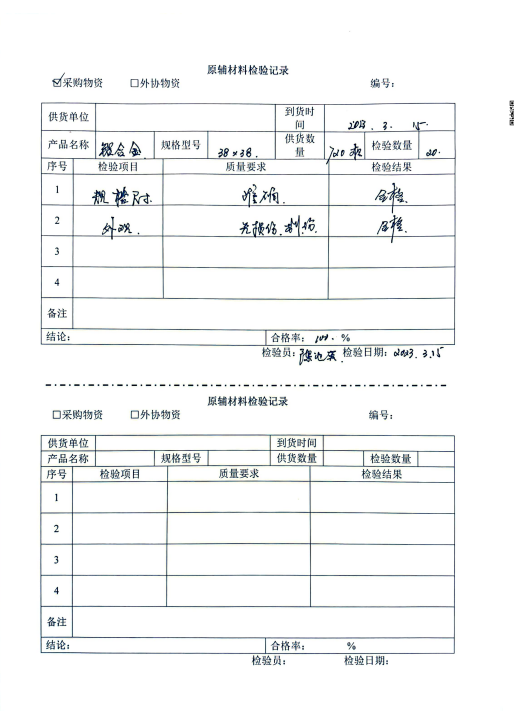 原辅材料检验记录
☑采购物资 □外协物资 编号:
供货单位 到货时间 2023. 3. 15.
产品名称 铝合金 规格型号 38×38. 供货数量 720 检验数量 20.
序号 检验项目 质量要求 检验结果
1 规格尺寸 准确. 合格.
2 外观. 无损伤.划伤. 合格.
3
4
备注
结论: 合格率: 100. %
检验员: 检验日期: 2023. 3.15
原辅材料检验记录
□采购物资 □外协物资 编号:
供货单位 到货时间
产品名称 规格型号 供货数量 检验数量
序号 检验项目 质量要求 检验结果
1
2
3
4
备注
结论: 合格率: %
检验员: 检验日期: